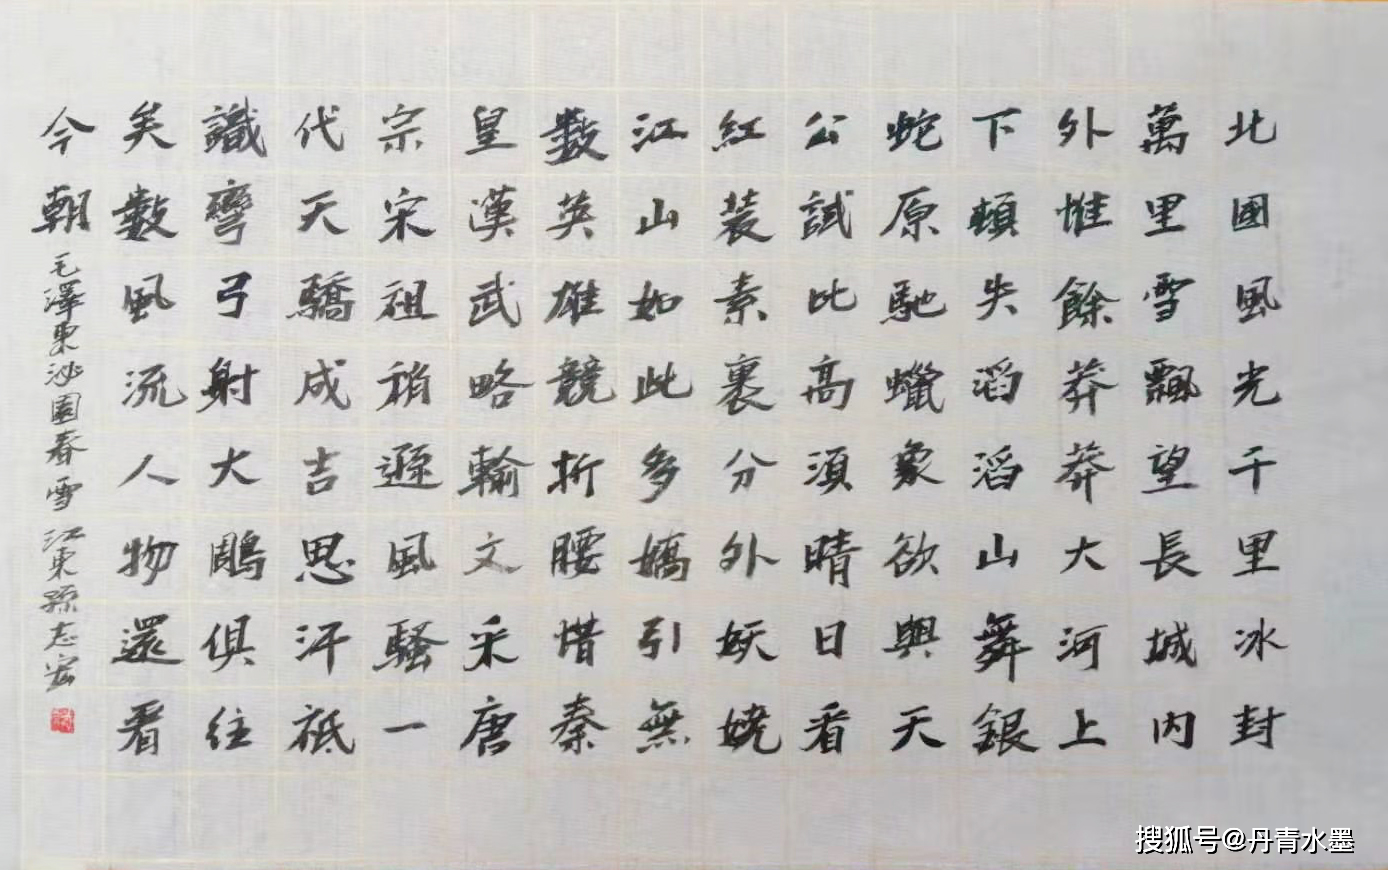 北國風光千里冰封
萬里雪飄望長城內
外惟餘莽莽大河上
下頓失滔滔山舞銀
蛇原馳蠟象欲與天
公試比高須晴日看
紅裝素裹分外妖嬈
江山如此多嬌引無
數英雄競折腰惜秦
皇漢武略輸文采唐
宗宋祖稍遜風騷一
代天驕成吉思汗祗
識彎弓射大鵰俱往
矣數風流人物還看
今朝 毛澤東沁園春雪 江東孫志宏
搜狐号@丹青水墨